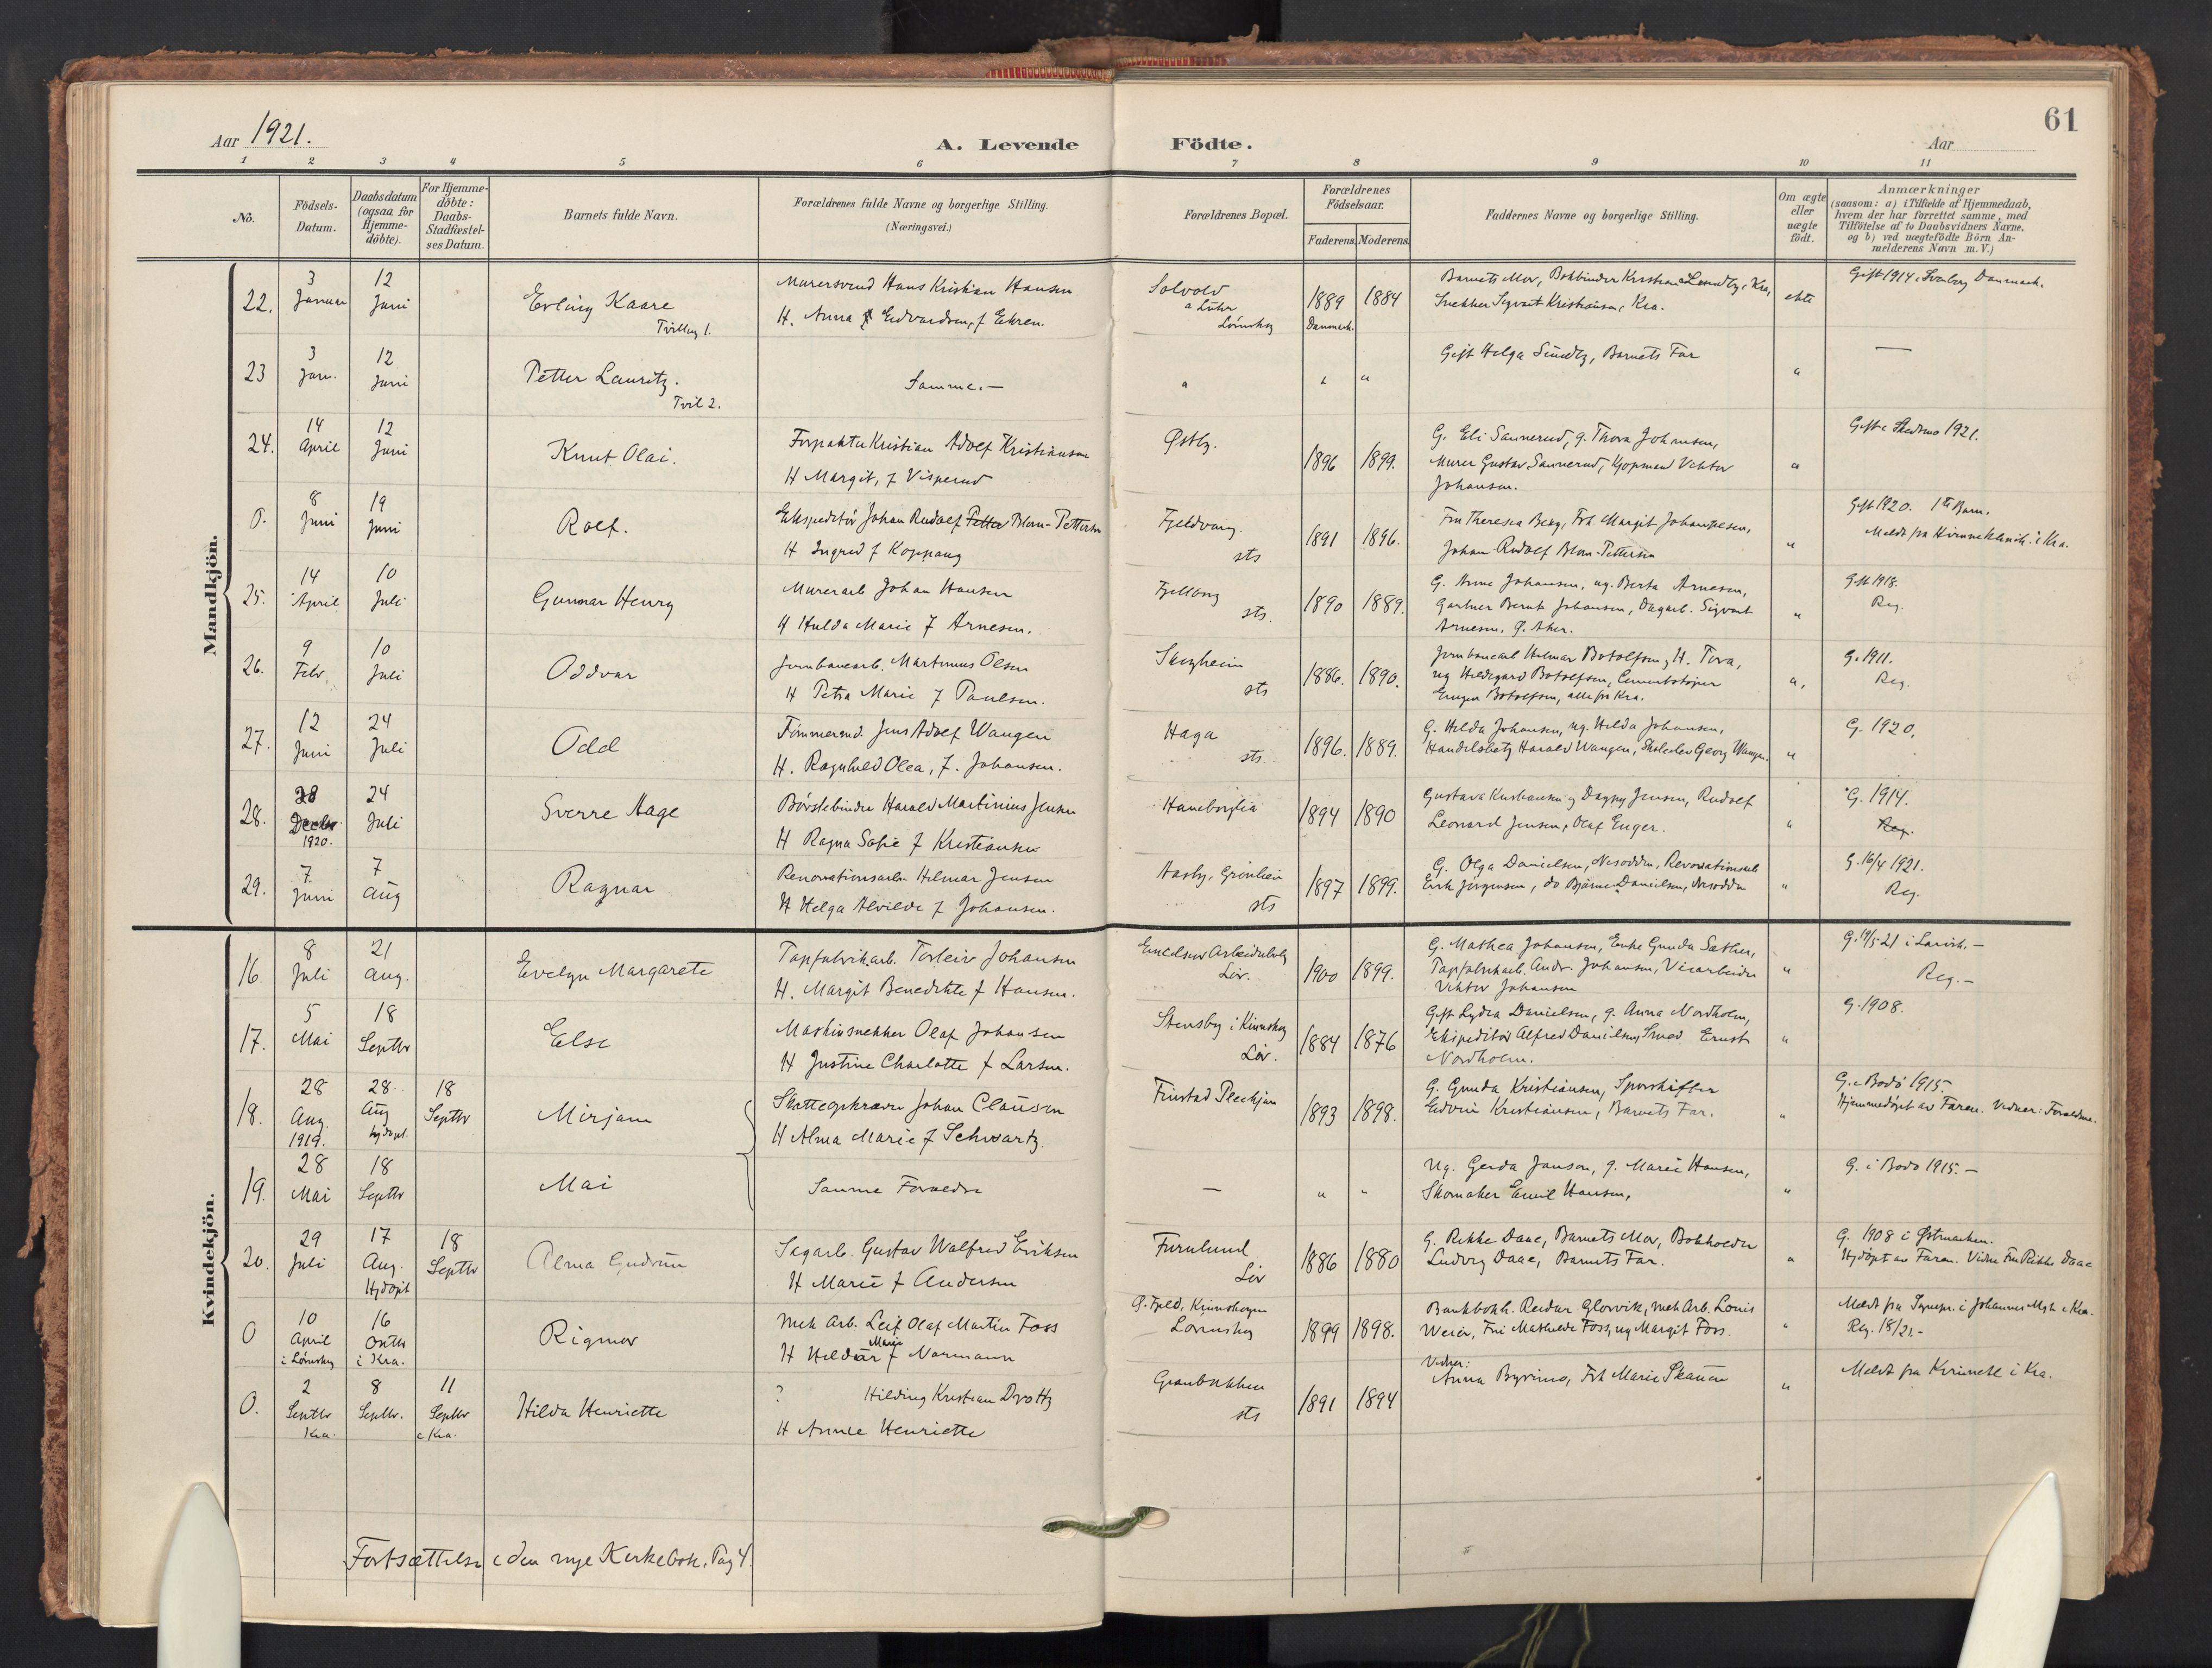 61
Aar 1921.
A. Levende Födte.
Aar
1 2 3 4 5 6 7 8 9 10 11
No.
Födsels-Datum.
Daabsdatum (ogsaa for Hjemme-döbte).
For Hjemme-döbte: Daabs-Stadfæstel-ses Datum.
Barnets fulde Navn.
Forældrenes fulde Navne og borgerlige Stilling.
(Næringsvei.)
Forældrenes Bopæl.
Forældrenes Födselsaar.
Faderens. Moderens.
Faddernes Navne og borgerlige Stilling.
Om ægte eller uægte födt.
Anmærkninger
(saasom: a) i Tilfælde af Hjemmedaab,
hvem der har forrettet samme, med
Tilföielse af to Daabsvidners Navne,
og b) ved uægtefödte Börn An-
melderens Navn m. V.)
Mandkjön.
22. 3 Januar 12 Juni Erling Kaare Tvilling 1.
Murersvend Hans Kristian Hansen
H. Anna Edvardsen, f Ekren.
Solvold
Lørnskog
1889 Danmark. 1884
Barnets Mor, Bokbinder Kristian Kra,
Snekker Sigvart Kristiansen, Kra.
ekte
Gift 1914 i Danmark.
23 3 Jan. 12 Juni Petter Lauritz. Tvil 2.
Samme. —
" " "
Gift Helga Sundby, Barnets Far
"
—
24. 14 April 12 Juni Knut Olai.
Forpakter Kristian Adolf Kristiansen
H Margit, f Visperud
Østby.
1896 1899.
G. Eli Sannerud, g. Thora Johansen,
Murer Gustav Sannerud, Kjøpmand Viktor
Johansen.
"
Gift i Skedsmo 1921.
0. 8 Juni 19 Juni Rolf.
Ekspeditør Johan Rudolf Petter Blom-Pettersen
H Ingrid f Koppang
Fjeldvang.
sts
1891 1896.
Fru Theresea Berg, Frk Margit Johannesen,
Johan Rudolf Blom-Pettersen
"
Gift 1920. 1ste Barn.
Meldt fra Kvinneklinik. i Kra.
25. 14 April 10 Juli Gunnar Henry
Murerarb Johan Hansen
H Hulda Marie f Arnesen.
sts.
1890 1889.
G. Anna Johansen, ug. Berta Arnesen,
Gartner Bernt Johansen, Dagarb. Sigvart
Arnesen, Ø. Aker.
"
Gift 1918.
Reg.
26. 9 Febr. 10 Juli Oddvar
Jernbanearb. Martinius Olsen
H Petra Marie f Paulsen.
Skogheim
sts
1886. 1890.
Jernbanearb Hilmar Botolfsen, H. Tora,
ug Hildegard Botolfsen, Cementstøper
Eugen Botolfsen, alle fra Kra.
"
G. 1911.
Reg.
27. 12 Juni 24 Juli Odd
Tømmermd. Jens Adolf Wangen
H. Ragnhild Olea, f. Johansen.
Haga
sts
1896. 1889.
G. Hilda Johansen, ug. Hilda Johansen,
Handelsbetj Harald Wangen, Skoleelev Georg Wangen.
"
G. 1920.
28. 28 Decbr. 1920. 24 Juli Sverre Aage
Børstebinder Harald Martinius Jensen
H Ragna Sofie f Kristiansen
Haneborglia
1894 1890
Gustava Kristiansen og Dagny Jensen, Rudolf
Leonard Jensen, Olaf Enger.
"
G. 1914.
Reg.
29. 7 Juni 7 Aug Ragnar
Renovationsarb. Hilmar Jensen
H Helga Alvilde f Johansen.
Aasby, Grønlien
sts
1897 1899.
G. Olga Danielsen, Nesodden, Renovationsarb
Erik Jørgensen, do Bjarne Danielsen, Nesodden
"
G. 16/4 1921.
Reg.
Kvindekjön.
16. 8 Juli 21 Aug. Evelyn Margarete
Tapfabrikarb. Torleiv Johansen
H. Margit Benedikte f Hansen.
Arbeiderbolig
Lør.
1900 1899.
G. Mathea Johansen, Enke Gunda Sæther,
Tapfabrikarb. Andr. Johansen, Visearbeider
Viktor Johansen
"
G. 14/5 21 i Larvik. —
Reg. —
17. 5 Mai 18 Septbr Else
Maskinsnekker Olaf Johansen
H Justine Charlotte f Larsen.
Stensby i Kinnskog
Lør.
1884 1876
Gift Lydia Danielsen, g. Anna Nordholm,
Ekspeditør Alfred Danielsen, Smed Ernst
Nordholm.
"
G. 1908.
18. 28 Aug. 1919. 28. Aug hjdøpt. 18 Septbr Mirjam
Skatteopkræver Johan Clausen
H Alma Marie f Schwartz.
Finstad Pleiehjem
1893 1898.
G. Gunda Kristiansen, Sporskifter
Edvin Kristiansen, Barnets Far.
"
G. i Bodø 1915.
Hjemmedøpt av Faren. Vidner: Foreldrene.
19. 28 Mai 18 Septbr Mai
Samme Foreldre
— " "
Ug. Gerda Janson, g. Marie Hansen,
Skomaker Emil Hansen,
"
G. i Bodø 1915. —
20. 29 Juli 17 Aug. Hjdøpt 18 Septbr Alma Gudrun
Sagarb. Gustav Walfred Eriksen
H Marie f Andersen
Furulund
Lør
1886 1880
G. Rikke Daae, Barnets Mor, Bokholder
Ludvig Daae, Barnets Far.
"
G. 1908 i Østmarken.
Hjdøpt av Faren. Vidne Fru Rikke Daae
0 10 April i Lørnskog 16 Oktbr i Kra. Rigmor
Mek Arb. Leif Olaf Martin Foss
H Hildur Marie f Normann
Ø. Fjeld, Kinnskogen
Lørnskog
1899 1898.
Bankbokh. Reidar Glorvik, mek Arb. Louis
Weier, Fru Mathilde Foss, ug Margit Foss.
"
Meldt fra Sognepr. i Johannes Mgh. i Kra.
Reg. 18/21. —
0. 2 Septbr Kra. 8 Septbr. 11 Septbr i Kra. Hilda Henriette
? Hilding Kristian Drottz
H Annie Henriette
Granbakken
sts
1891 1894
Vidner:
Anna Byrimo, Frk Marie Skauen
"
Meldt fra Kvinnekl i Kra.
Fortsættelse i den nye Kirkebok. Pag 4.